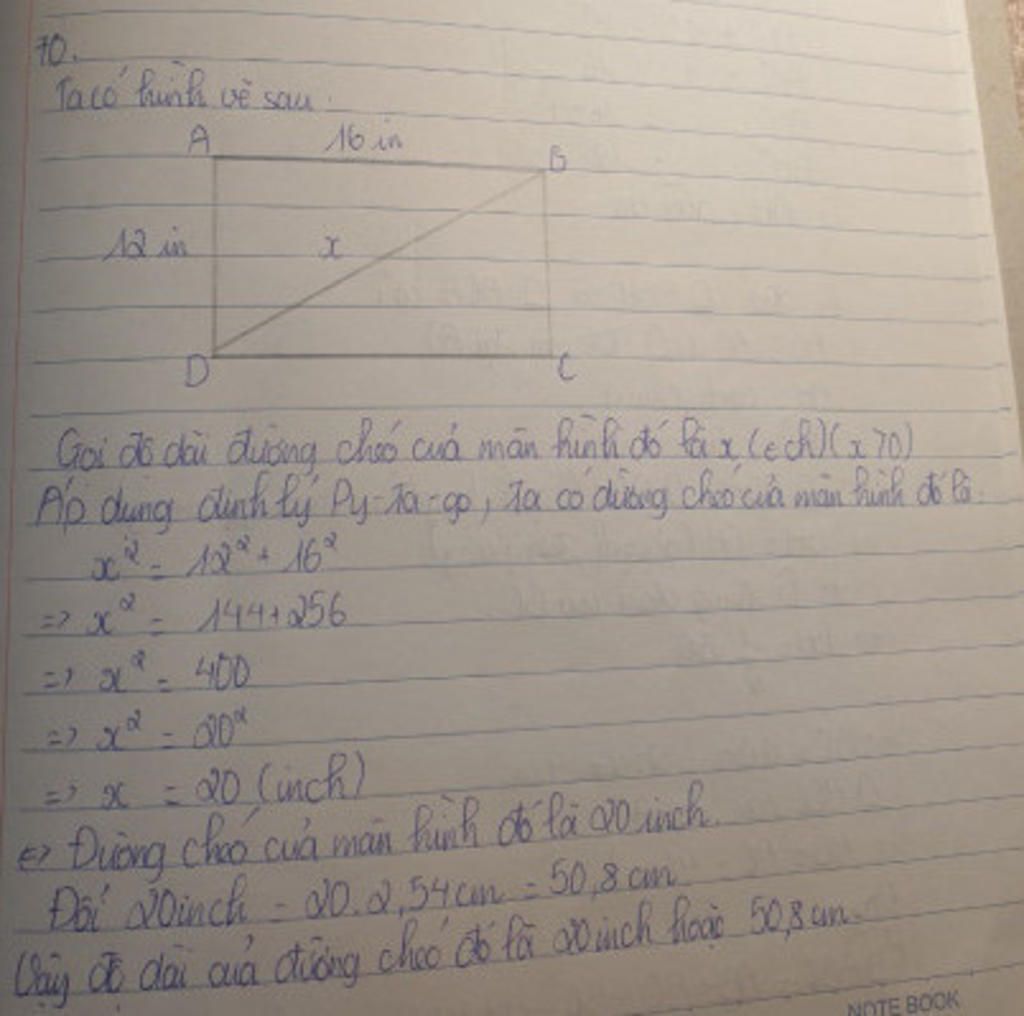 70.
Ta có hình vẽ sau.
A 16 in B
12 in x
D C
Gọi độ dài đường chéo của màn hình đó là x (ech) (x > 0)
Áp dụng định lý Py-ta-go, ta có đường chéo của màn hình đó là
x² = 12² + 16²
=> x² = 144 + 256
=> x² = 400
=> x² = 20²
=> x = 20 (inch)
<=> Đường chéo của màn hình đó là 20 inch.
Đổi 20 inch = 20.2,54 cm = 50,8 cm
Vậy độ dài của đường chéo đó là 20 inch hoặc 50,8 cm.
NOTE BOOK